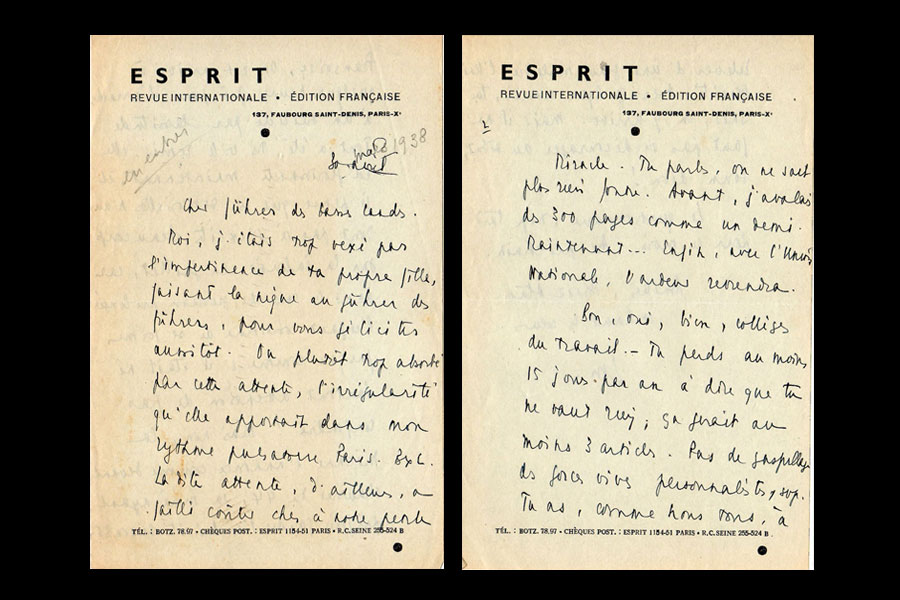 ESPRIT
REVUE INTERNATIONALE • ÉDITION FRANÇAISE
137, FAUBOURG SAINT-DENIS, PARIS-Xe
mars 1938
Cher führer des pays chauds.
Moi, j'étais trop vexé par
l'impertinence de ta propre fille,
faisant la nique au führer des
führers, pour vous féliciter
aussitôt. Ou plutôt trop absorbé
par cette attente, l'irrégularité
qu'elle apportait dans mon
rythme Paris. Bxl.
La dite attente, d'ailleurs, a
failli coûter cher à notre
TÉL. : BOTZ. 78.97 • CHÈQUES POST. : ESPRIT 1154-51 PARIS • R.C. SEINE 255-524 B
2
Miracle. Tu parles, on ne sait
plus rien foutre. Avant, j'avalais
ds 300 pages comme un demi.
Maintenant... Enfin, avec l'Union
Nationale, l'ardeur reviendra.
Bon, oui, bien, colliges
du travail. — Tu perds au moins
15 jours par an à dire que tu
ne vaux rien, ça ferait au
moins 3 articles. Pas de gaspillage
ds forces vives personnalistes, svp.
Tu as, comme nous tous, à
TÉL. : BOTZ. 78.97 • CHÈQUES POST. : ESPRIT 1154-51 PARIS • R.C. SEINE 255-524 B.
ESPRIT
REVUE INTERNATIONALE • ÉDITION FRANÇAISE
137, FAUBOURG SAINT-DENIS, PARIS-Xe